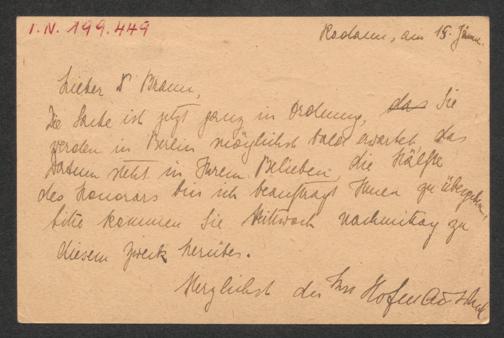 I.N. 199.449
Rodaun, am 15. Jänn.
Lieber Dr Braun,
Die Sache ist jetzt ganz in Ordnung, das Sie
werden in Berlin möglichst bald erwartet, das
Datum steht in Ihrem Belieben, die Hälfte
des Honorars bin ich beauftragt Ihnen zu übergeben,
bitte kommen Sie Mittwoch nachmittag zu
diesem Zweck herüber.
Herzlichst der Ihre Hofmannsthal